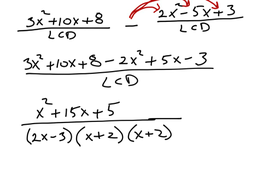 (3x²+10x+8)/LCD − (2x²-5x+3)/LCD
(3x²+10x+8-2x²+5x-3)/LCD
(x²+15x+5)/((2x-3)(x+2)(x+2))